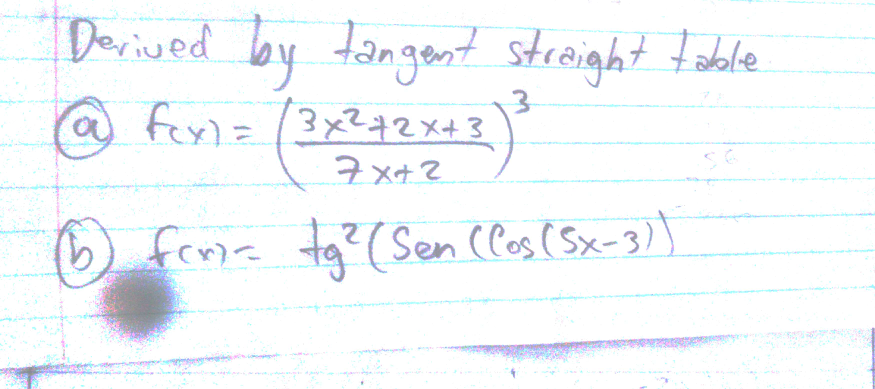 Derived by tangent straight table
a f(x) = (3x²+2x+3 / 7x+2)³
b f(x) = tg²(Sen(Cos(5x-3))